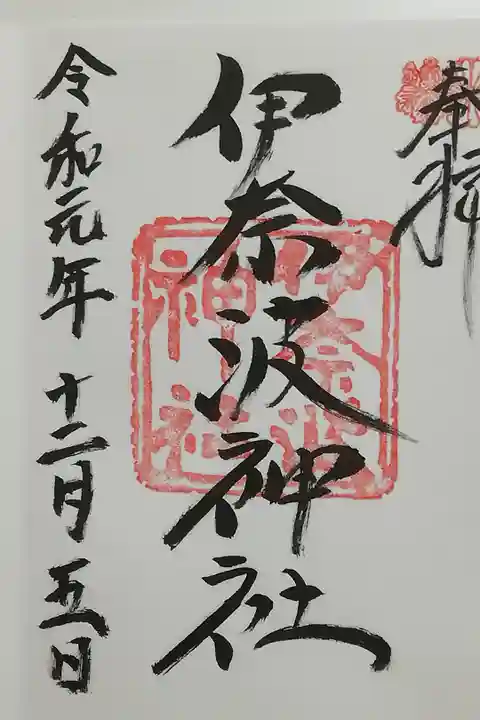 奉拝
伊奈波神社
令和元年十二月五日
伊奈波
神社